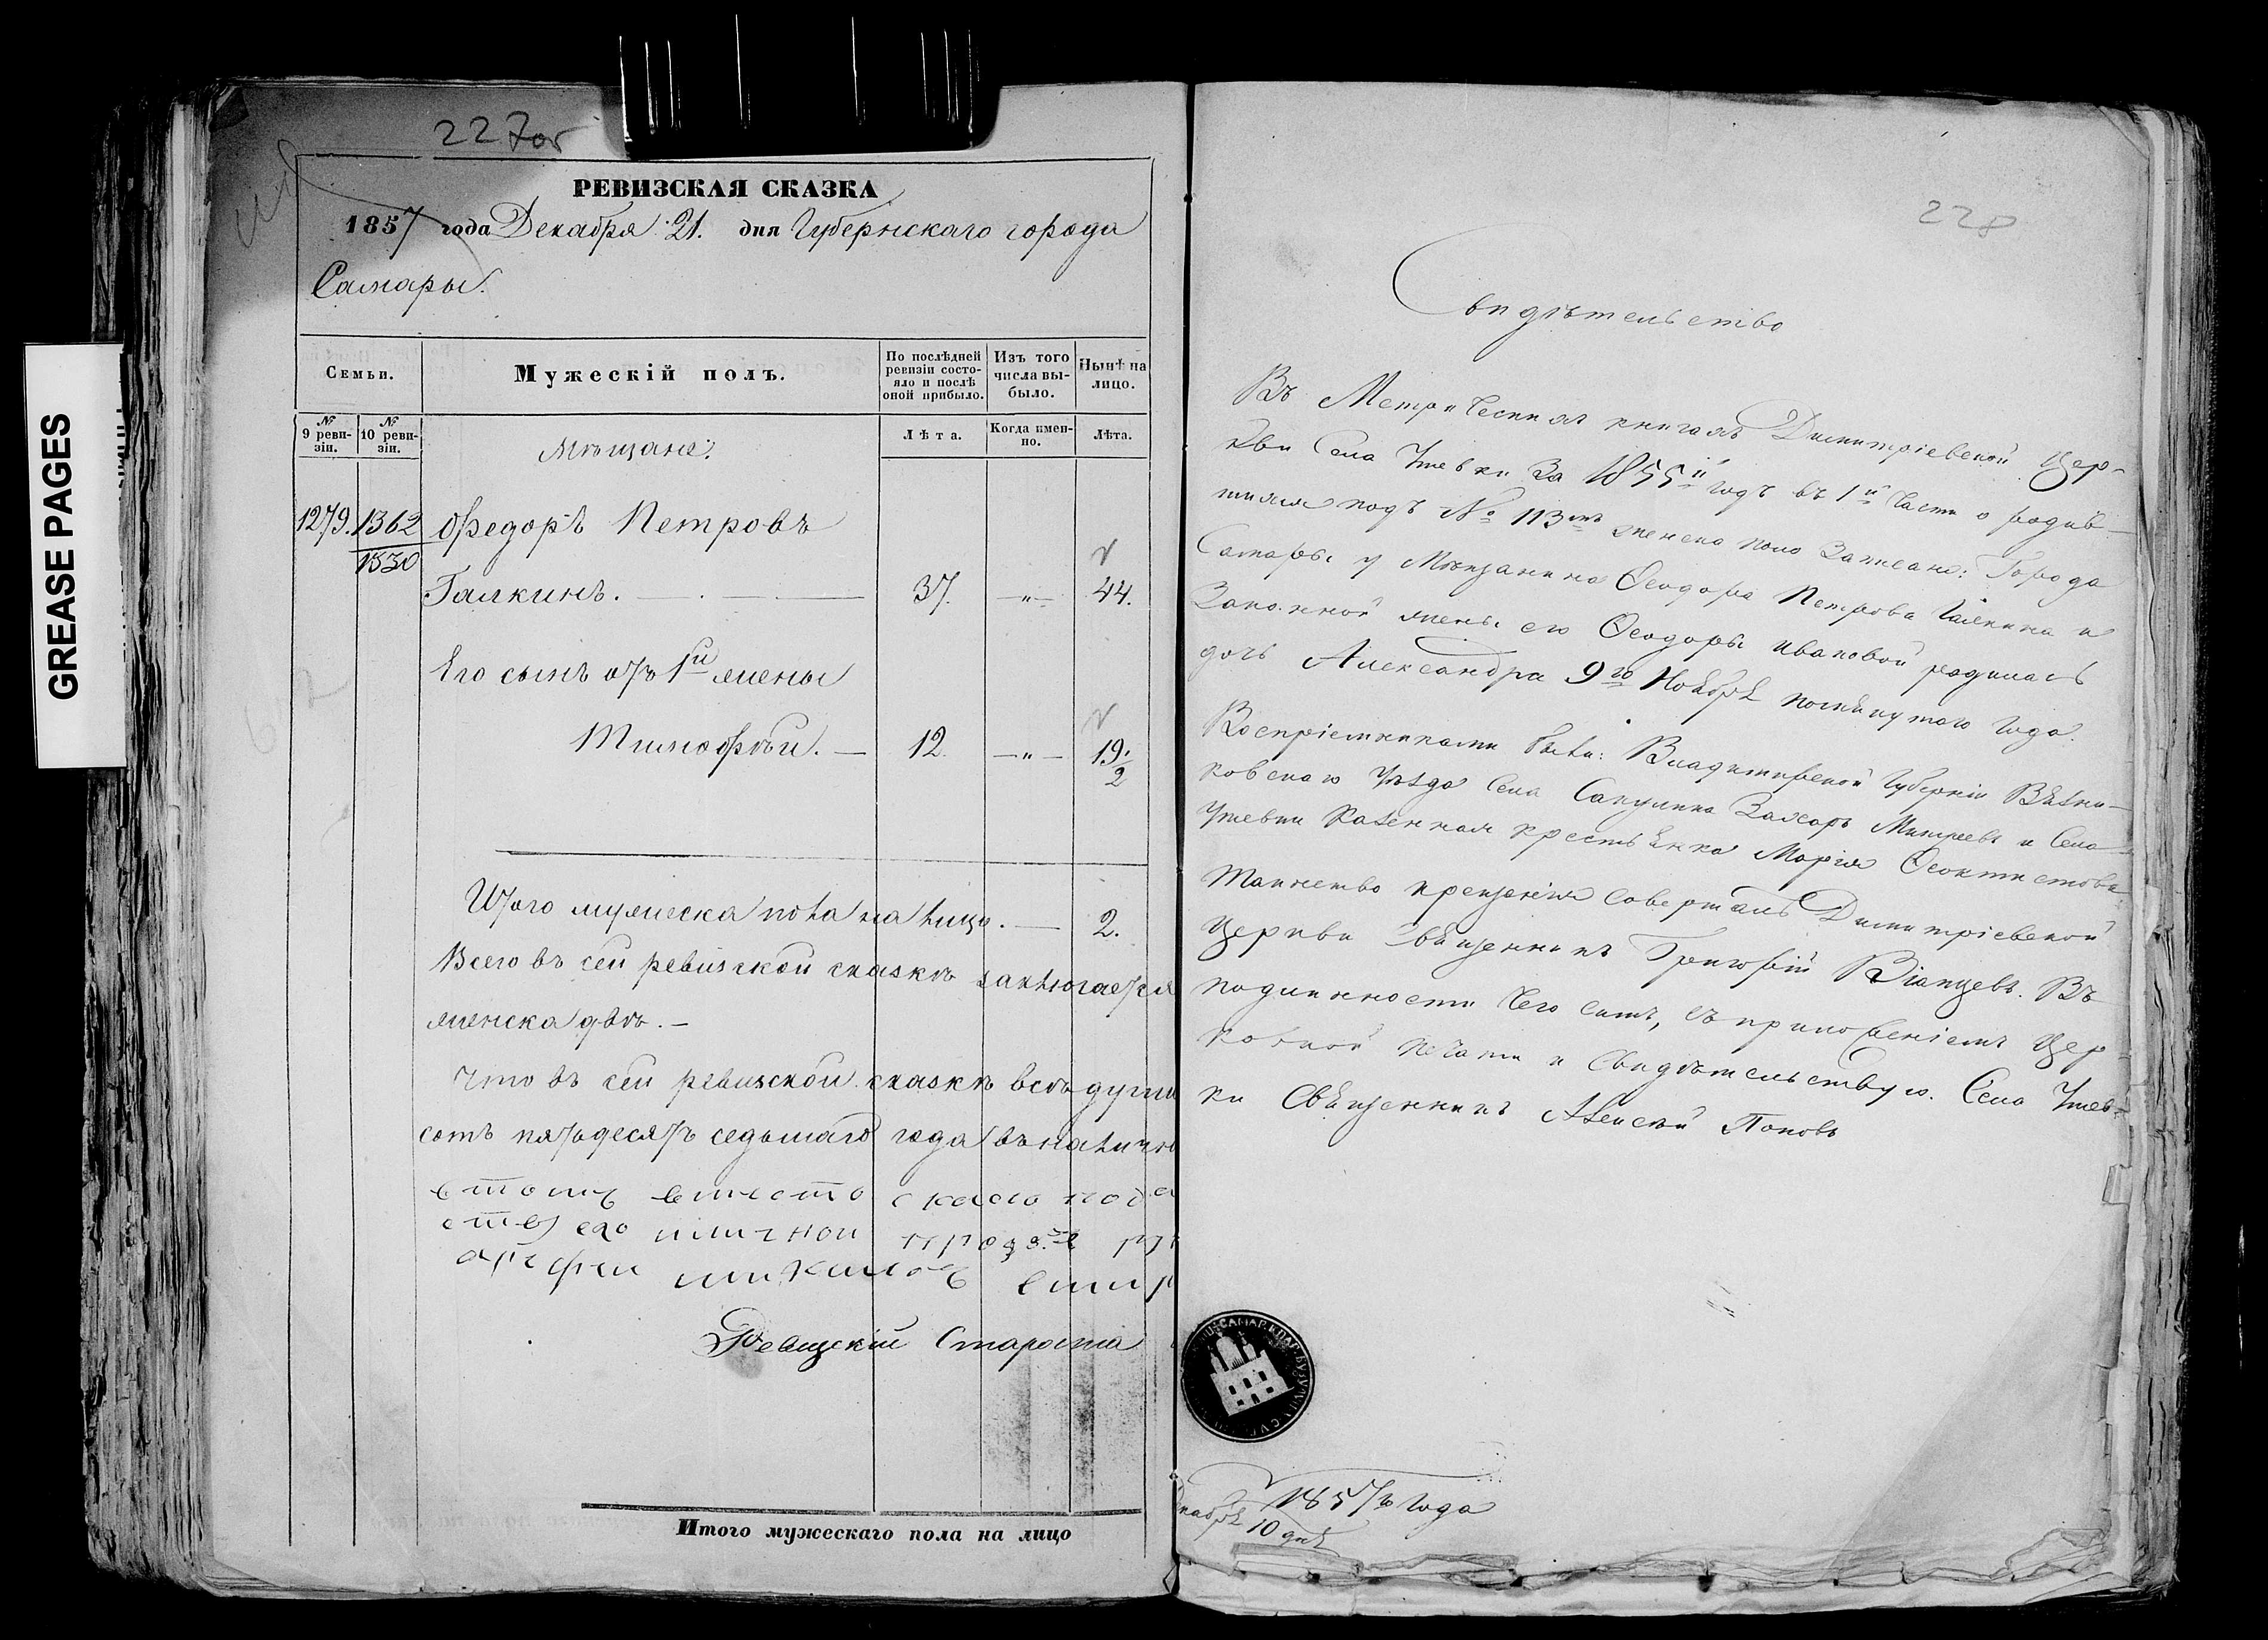 GREASE PAGES
227об
РЕВИЗСКАЯ СКАЗКА
1857 года Декабря 21. дня Губернскаго города
Самары.
Семьи.
Мужескій полъ.
По послѣдней ревизіи состояло и послѣ оной прибыло.
Изъ того числа выбыло.
Нынѣ на лицо.
№ 9 ревизіи.
№ 10 ревизіи.
Мѣщане:
Лѣта.
Когда именно.
Лѣта.
1279. 1362 Ѳедоръ Петровъ
1530
Галкинъ. 37. —"— 44.
Его сынъ отъ 1й жены
Тимофѣй. — 12 —"— 19 1/2
Итого мужеска пола на лицо. — 2.
Всего въ сей ревизской сказкѣ заключается
женска двѣ. —
Что въ сей ревизской сказкѣ всѣ души
сотъ пятьдесятъ седьмаго года въ налично
его личной
Ревизскій Староста
Итого мужескаго пола на лицо
228
Свидѣтельство
Въ Метрическихъ книгахъ Димитріевской Цер-
кви Села Утевки За 1855й годъ въ 1й Части о родив-
шихся подъ № 113мъ женска пола Записано: Города
Самары у Мѣщанина Ѳеодора Петрова Галкина и
Законной жены его Ѳеодоры Ивановой родилась
дочь Александра 9го Ноября помянутаго Года.
Воспріемниками были: Владимирской Губерніи Вязни-
ковскаго Уѣзда Села Сакулина Захаръ Матвеевъ и Села
Утевки Казенная крестьянка Марія Ѳеоктистова
Таинство крещенія совершалъ Димитріевской
Церкви Священникъ Григорій Въ
подлинности Чего симъ, съ приложеніемъ Цер-
ковной печати и Свидѣтельствую. Села Утев-
ки Священникъ Алексѣй Поповъ
1857го Года
Декабря 10 дня